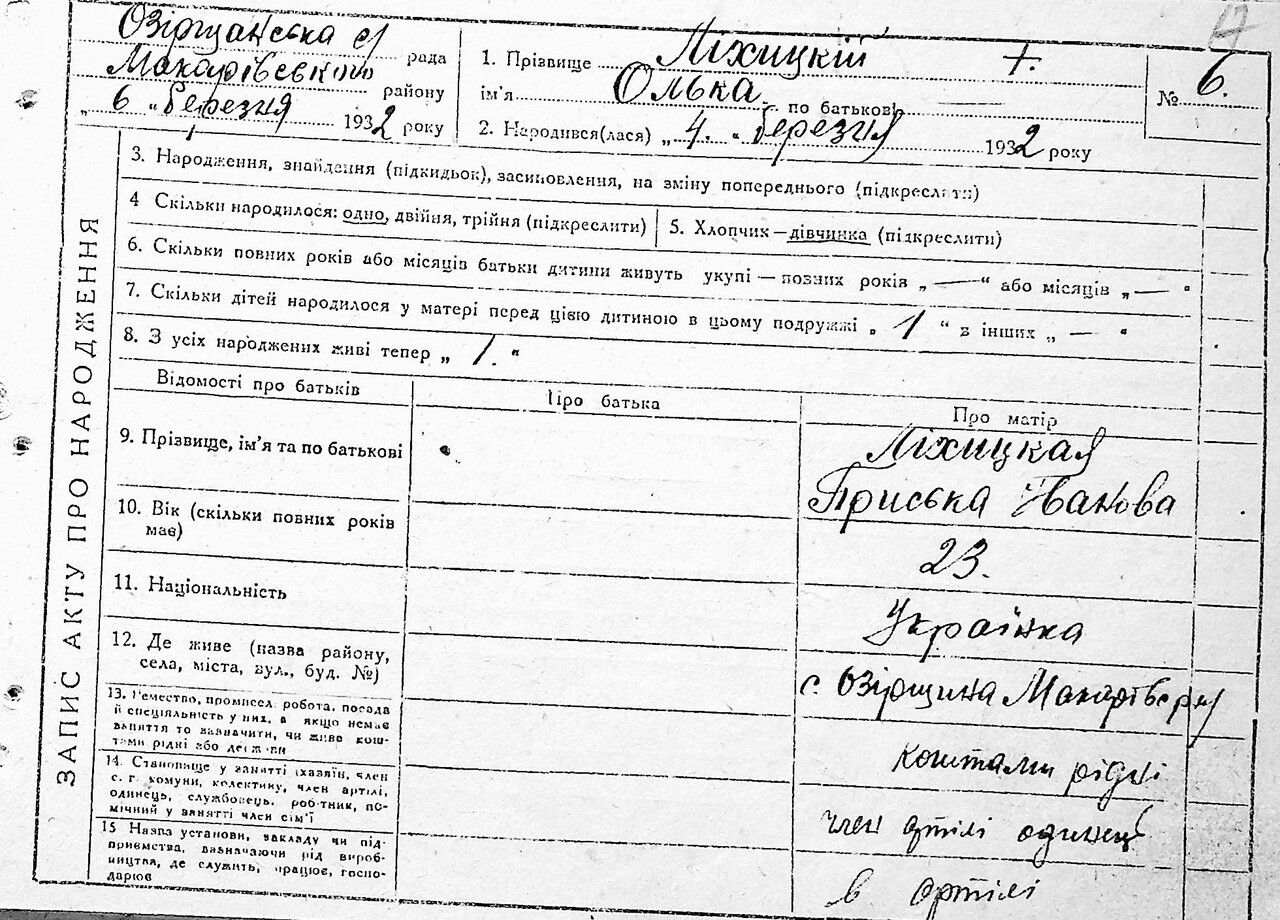 Озірщанська с/ рада
Макарівського району
„ 6 „ березня 1932 року
1. Прізвище Ліхицкій
ім'я Олька по батькові —
2. Народився(лася) „ 4. „ березня 1932 року
№ 6.
ЗАПИС АКТУ ПРО НАРОДЖЕННЯ
3. Народження, знайдення (підкидьок), засиновлення, на зміну попереднього (підкреслити)
4 Скільки народилося: одно, двійня, трійня (підкреслити)
5. Хлопчик — дівчинка (підкреслити)
6. Скільки повних років або місяців батьки дитини живуть укупі — повних років „ — “ або місяців „ — “
7. Скільки дітей народилося у матері перед цією дитиною в цьому подружжі „ 1 “ в інших „ — “
8. З усіх народжених живі тепер „ 1. “
Відомості про батьків
Про батька
Про матір
9. Прізвище, ім'я та по батькові
Ліхицкая
Приська Іванова
10. Вік (скільки повних років
має)
23.
11. Національність
Українка
12. Де живе (назва району,
села, міста, вул., буд. №)
с. Озірщина Макарівс р/
13. Ремество, промисел, робота, посада
й спеціяльність у них, а якщо немає
заняття то зазначити, чи живе кош-
тами рідні або держави
коштами рідні
14. Становище у занятті (хазяїн, член
с. г. комуни, колективу, член артілі,
одинець, службовець, робітник, по-
мічний у занятті член сім'ї
член артілі одинец
15 Назва установи, закладу чи під-
приємства, зазначаючи рід вироб-
ництва, де служить, працює, госпо-
дарює
в артілі